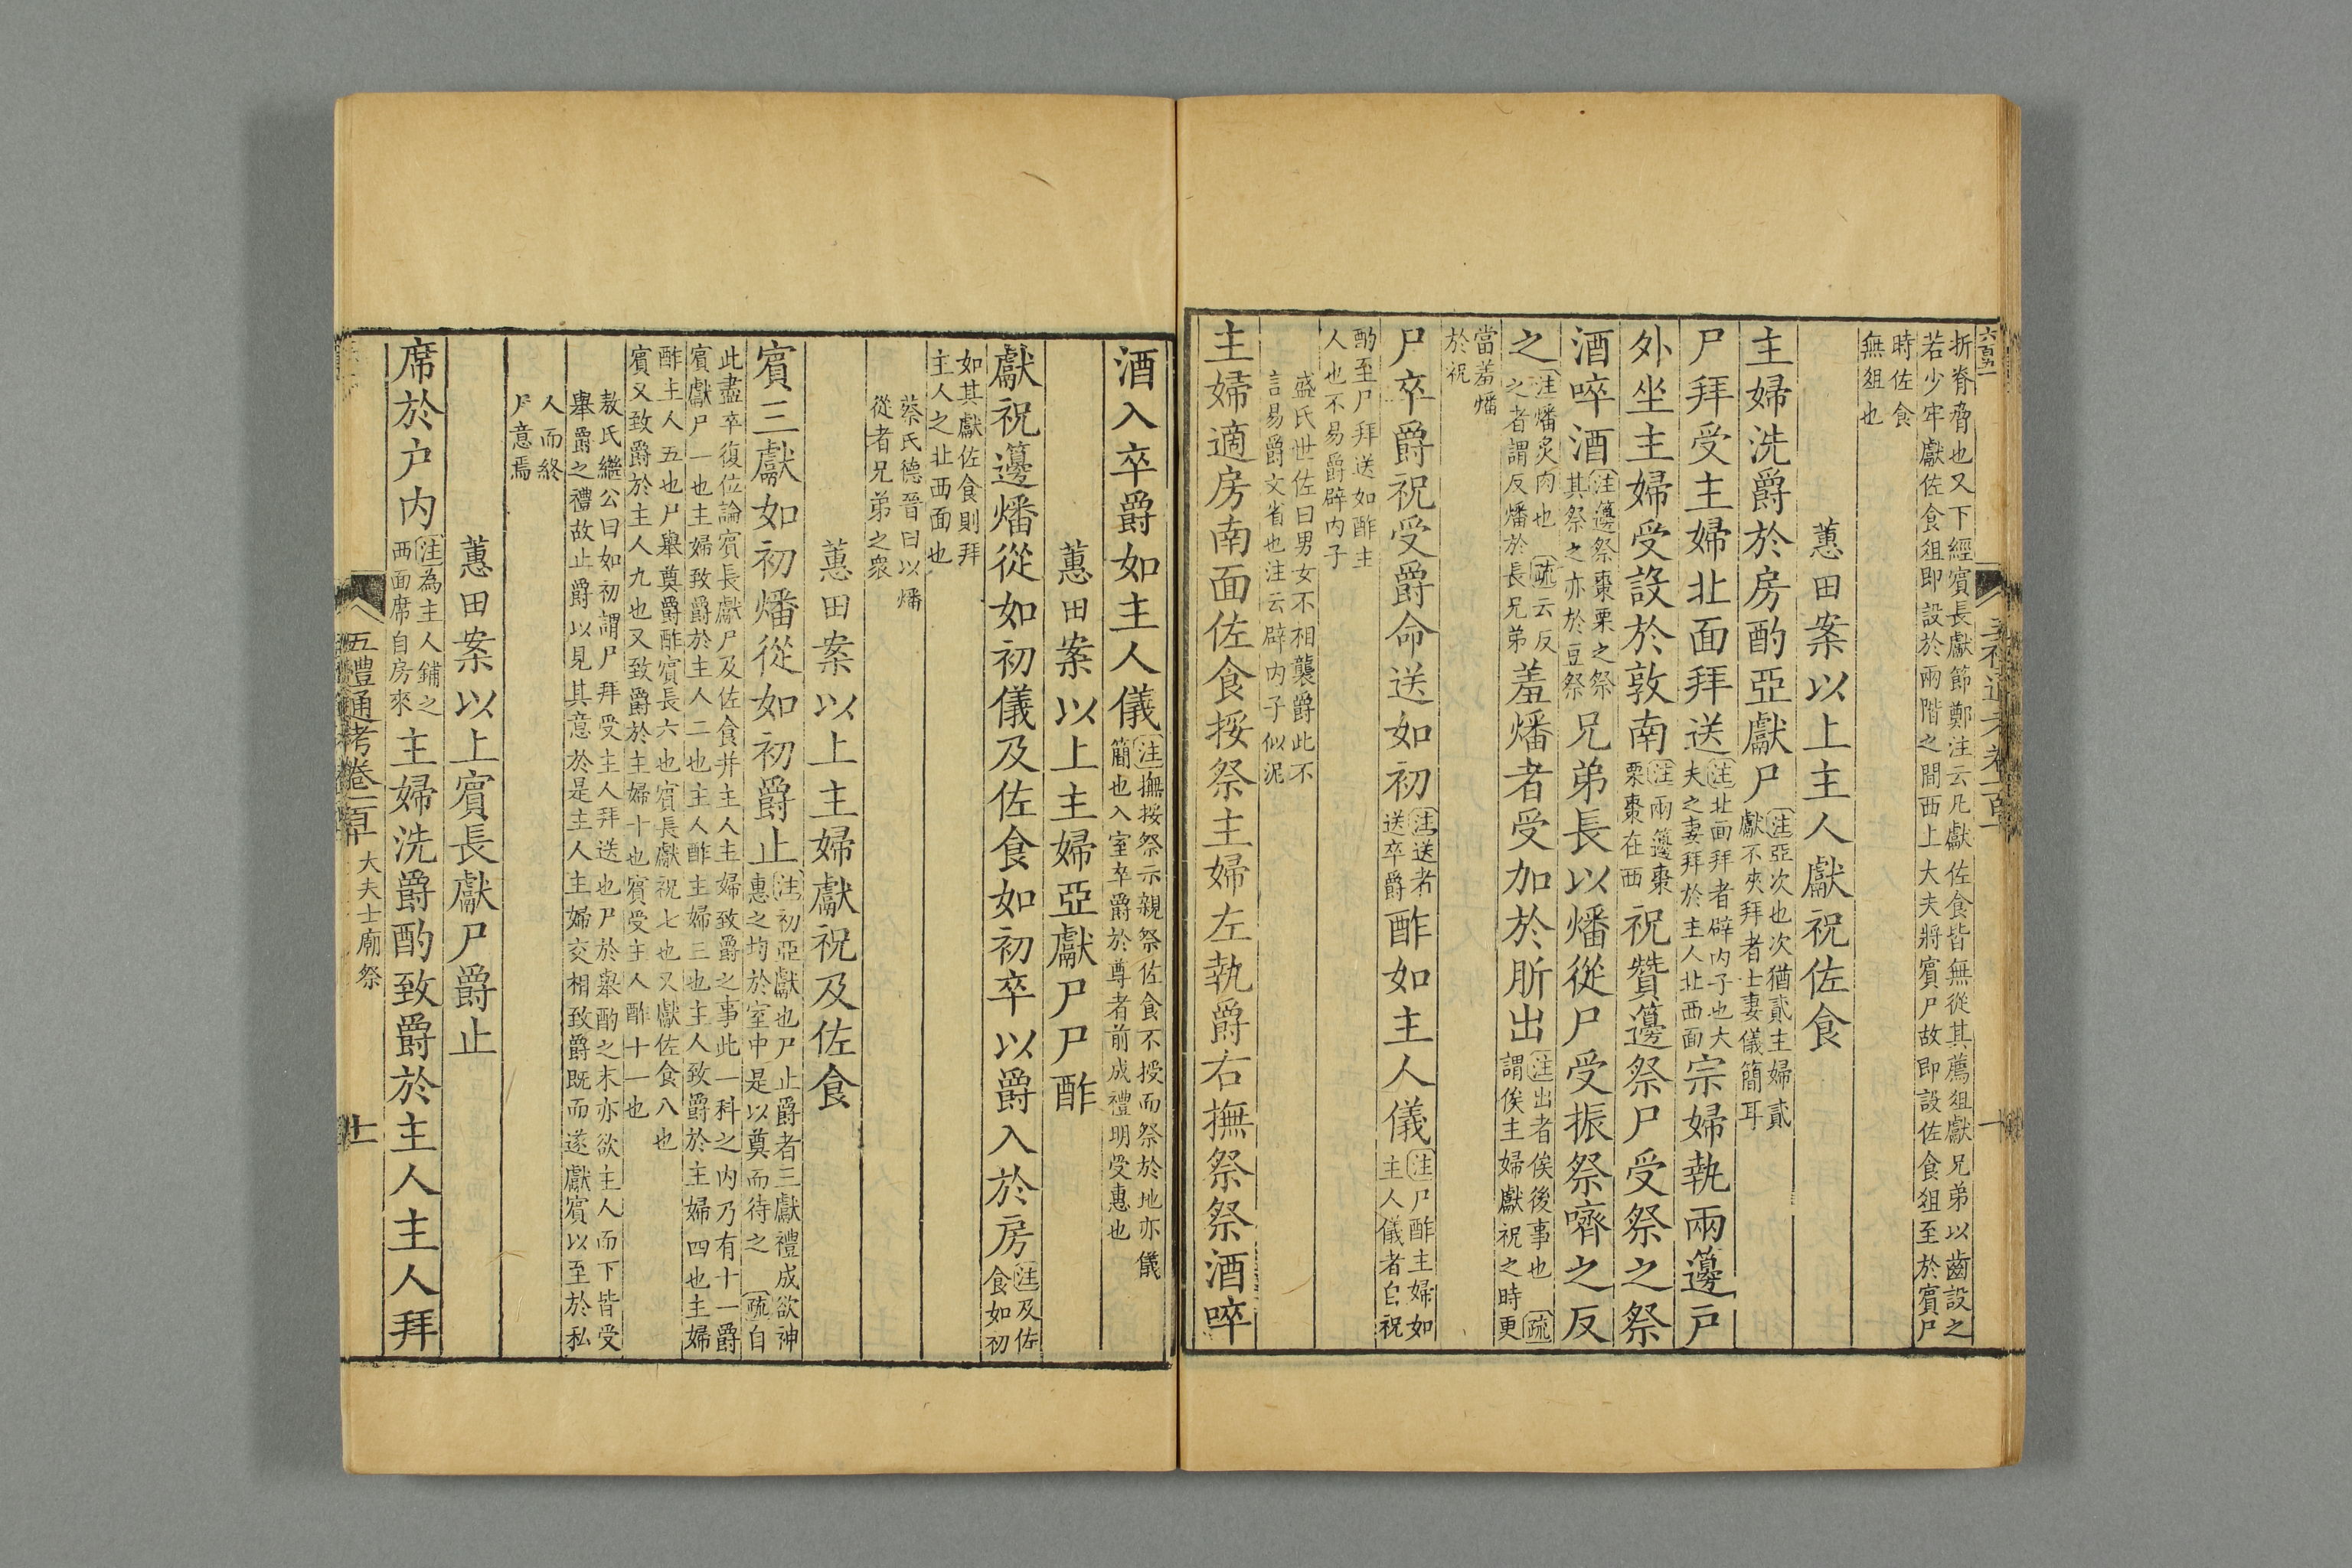 六百五一
折脊脅也又下經賓長獻節鄭注云凡獻佐食皆無從其薦俎獻兄弟以齒設之
若少牢獻佐食俎即設於兩階之間西上大夫將賓尸故即設佐食俎至於賓尸
時佐食
無俎也
蕙田案以上主人獻祝佐食
主婦洗爵於房酌亞獻尸注亞次也次猶貳主婦貳
獻不夾拜者士妻儀簡耳
尸拜受主婦北面拜送注北面拜者辟内子也大
夫之妻拜於主人北西面宗婦執兩籩戸
外坐主婦受設於敦南注兩籩棗
栗棗在西祝贊籩祭尸受祭之祭
酒啐酒注籩祭棗栗之祭
其祭之亦於豆祭兄弟長以燔從尸受振祭嚌之反
之注燔炙肉也 疏云反
之者謂反燔於長兄弟羞燔者受加於肵出注出者俟後事也 疏
謂俟主婦獻祝之時更
當羞燔
於祝
尸卒爵祝受爵命送如初注送者
送卒爵酢如主人儀注尸酢主婦如
主人儀者自祝
酌至尸拜送如酢主
人也不易爵辟内子
盛氏世佐曰男女不相襲爵此不
言易爵文省也注云辟内子似泥
主婦適房南面佐食挼祭主婦左執爵右撫祭祭酒啐
酒入卒爵如主人儀注撫挼祭示親祭佐食不授而祭於地亦儀
簡也入室卒爵於尊者前成禮明受惠也
蕙田案以上主婦亞獻尸尸酢
獻祝籩燔從如初儀及佐食如初卒以爵入於房注及佐
食如初
如其獻佐食則拜
主人之北西面也
蔡氏德晉曰以燔
從者兄弟之衆
蕙田案以上主婦獻祝及佐食
賓三獻如初燔從如初爵止注初亞獻也尸止爵者三獻禮成欲神
惠之均於室中是以奠而待之 疏自
此盡卒復位論賓長獻尸及佐食并主人主婦致爵之事此一科之内乃有十一爵
賓獻尸一也主婦致爵於主人二也主人酢主婦三也主人致爵於主婦四也主婦
酢主人五也尸舉奠爵酢賓長六也賓長獻祝七也又獻佐食八也
賓又致爵於主人九也又致爵於主婦十也賓受主人酢十一也
敖氏繼公曰如初謂尸拜受主人拜送也尸於舉酌之末亦欲主人而下皆受
舉爵之禮故止爵以見其意於是主人主婦交相致爵既而遂獻賓以至於私
人而終
尸意焉
蕙田案以上賓長獻尸爵止
席於户内注為主人鋪之
西面席自房來主婦洗爵酌致爵於主人主人拜
五禮通考卷一百一 大夫士廟祭
十一